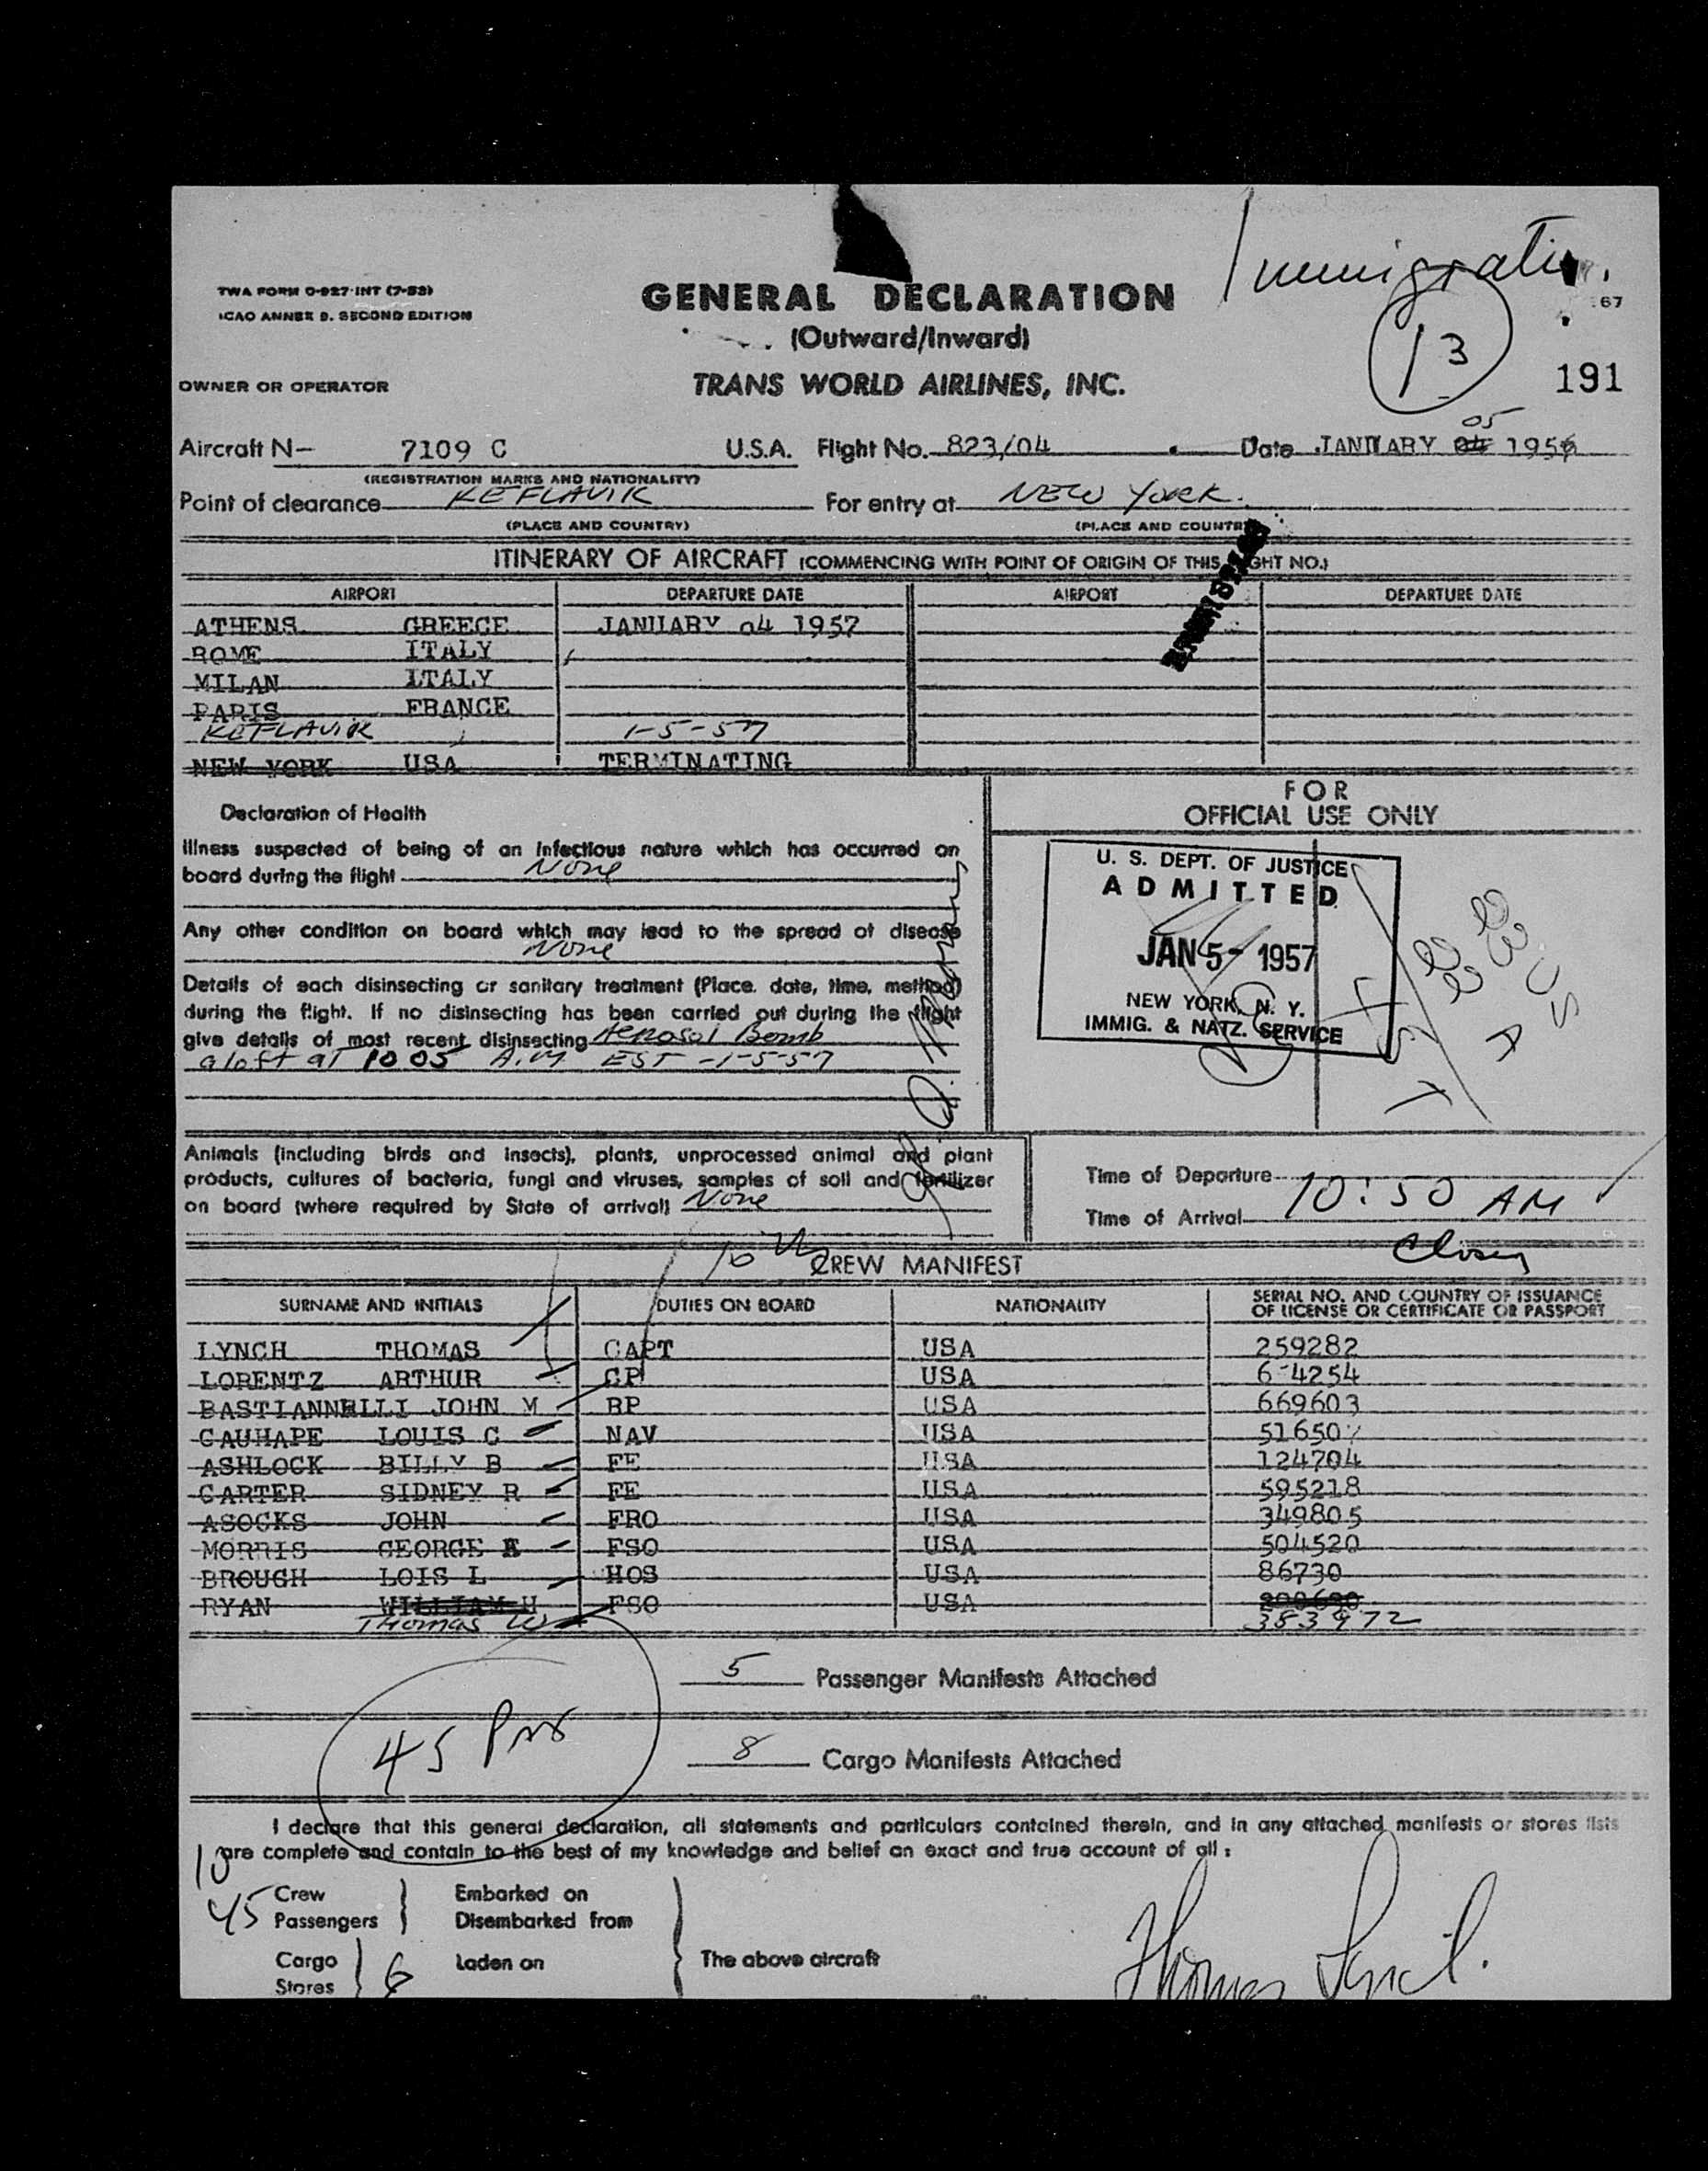 Immigration
TWA FORM O-927-INT (7-53)
ICAO ANNEX 9. SECOND EDITION
GENERAL DECLARATION
(Outward/Inward)
67
13
191
OWNER OR OPERATOR TRANS WORLD AIRLINES, INC.
05
Aircraft N- 7109 C U.S.A. Flight No. 823/04 Date JANUARY 04 1956
(REGISTRATION MARKS AND NATIONALITY)
Point of clearance KEFLAVIK For entry at NEW YORK.
(PLACE AND COUNTRY) (PLACE AND COUNTRY
ITINERARY OF AIRCRAFT (COMMENCING WITH POINT OF ORIGIN OF THIS FLIGHT NO.)
AIRPORT DEPARTURE DATE AIRPORT DEPARTURE DATE
ATHENS GREECE JANUARY 04 1957
ROME ITALY
MILAN ITALY
PARIS FRANCE
KEFLAVIK 1-5-57
NEW YORK USA TERMINATING
FOR
OFFICIAL USE ONLY
Declaration of Health
Illness suspected of being of an infectious nature which has occurred on
board during the flight None
Any other condition on board which may lead to the spread of disease
None
Details of each disinsecting or sanitary treatment (Place, date, time, method)
during the flight. If no disinsecting has been carried out during the flight
give details of most recent disinsecting Aerosol Bomb
aloft at 1005 A.M EST -1-5-57
U. S. DEPT. OF JUSTICE
ADMITTED
JAN 5- 1957
NEW YORK, N. Y.
IMMIG. & NATZ. SERVICE
Animals (including birds and insects), plants, unprocessed animal and plant
products, cultures of bacteria, fungi and viruses, samples of soil and fertilizer
on board (where required by State of arrival) None
Time of Departure
Time of Arrival 10:50 AM
CREW MANIFEST
SURNAME AND INITIALS DUTIES ON BOARD NATIONALITY SERIAL NO. AND COUNTRY OF ISSUANCE
OF LICENSE OR CERTIFICATE OR PASSPORT
LYNCH THOMAS CAPT USA 259282
LORENTZ ARTHUR CP USA 6-4254
BASTIANNELLI JOHN M RP USA 669603
CAUHAPE LOUIS C NAV USA 516507
ASHLOCK BILLY B FE USA 124704
CARTER SIDNEY R FE USA 595218
ASOCKS JOHN FRO USA 349805
MORRIS GEORGE A FSO USA 504520
BROUGH LOIS L HOS USA 86730
RYAN WILLIAM H FSO USA
THOMAS W 383972
5 Passenger Manifests Attached
45 Pax
8 Cargo Manifests Attached
I declare that this general declaration, all statements and particulars contained therein, and in any attached manifests or stores lists
are complete and contain to the best of my knowledge and belief an exact and true account of all :
10 Crew Embarked on
45 Passengers Disembarked from
Cargo Laden on The above aircraft
Stores 6
Thomas Lynch